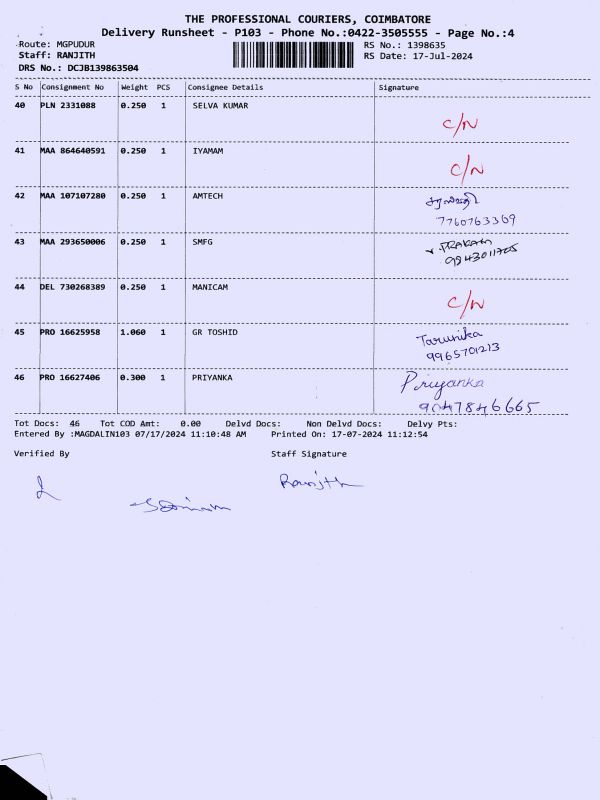 THE PROFESSIONAL COURIERS, COIMBATORE
Delivery Runsheet - P103 - Phone No.:0422-3505555 - Page No.:4
Route: MGPUDUR RS No.: 1398635
Staff: RANJITH RS Date: 17-Jul-2024
DRS No.: DCJB139863504
S No Consignment No Weight PCS Consignee Details Signature
40 PLN 2331088 0.250 1 SELVA KUMAR
C/N
41 MAA 864640591 0.250 1 IYAMAM
C/N
42 MAA 107107280 0.250 1 AMTECH
7760763369
43 MAA 293650006 0.250 1 SMFG
PRAKASH
44 DEL 730268389 0.250 1 MANICAM
C/N
45 PRO 16625958 1.060 1 GR TOSHID
Tarunika
9965701213
46 PRO 16627406 0.300 1 PRIYANKA
Priyanka
9047846665
Tot Docs: 46 Tot COD Amt: 0.00 Delvd Docs: Non Delvd Docs: Delvy Pts:
Entered By :MAGDALIN103 07/17/2024 11:10:48 AM Printed On: 17-07-2024 11:12:54
Verified By Staff Signature
Ranjith